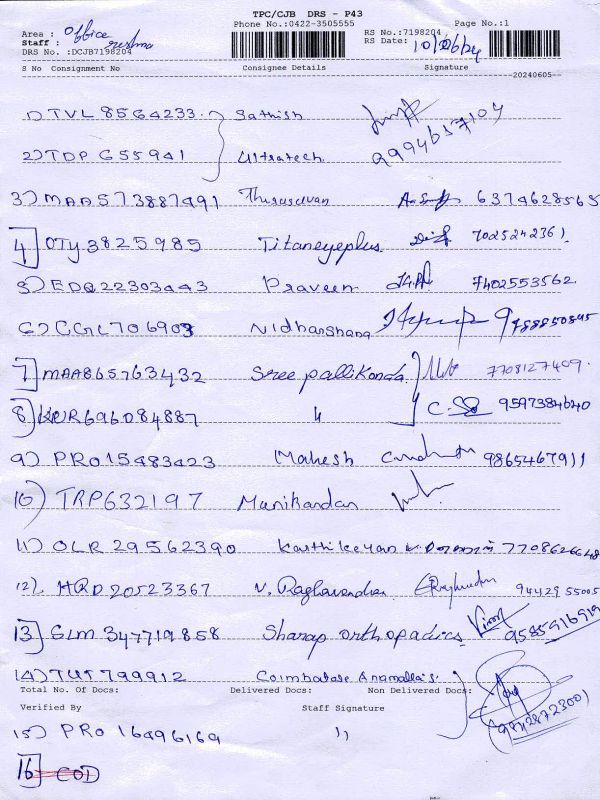 TPC/CJB DRS - P43
Phone No.:0422-3505555 Page No.:1
Area : office
Staff :
DRS No. :DCJB7198204
RS No.:7198204
RS Date: 10/06/24
S No Consignment No Consignee Details Signature
--20240605--
1) TVL 8564233 Sathish 9994657104
2) TDP G55941 Ultratech
3) MAA573887491 6374628565
4] OTY3825985 Titaneyeplus 7025242361
5) EDQ22303443 Praveen 7402553562
6) CGL706903 Nidharshana 9788850845
7] MAA865763432 Sree pallikonda 7708127409
8] KUR696084887 " C. 9597384640
9) PRO15483423 Mahesh 9865467911
10) TRP632197 Manikandan
11) OLR 29562390 Karthikeyan 7708626648
12) HRD20523367 V. Raghavendran 94429 55005
13] SLM347719858 Sharap orthopadics 9585916919
14) TUT799912 Coimbatore Anamallai's
Total No. Of Docs: Delivered Docs: Non Delivered Docs:
Verified By Staff Signature
15) PRO 16496169 "
16] COD